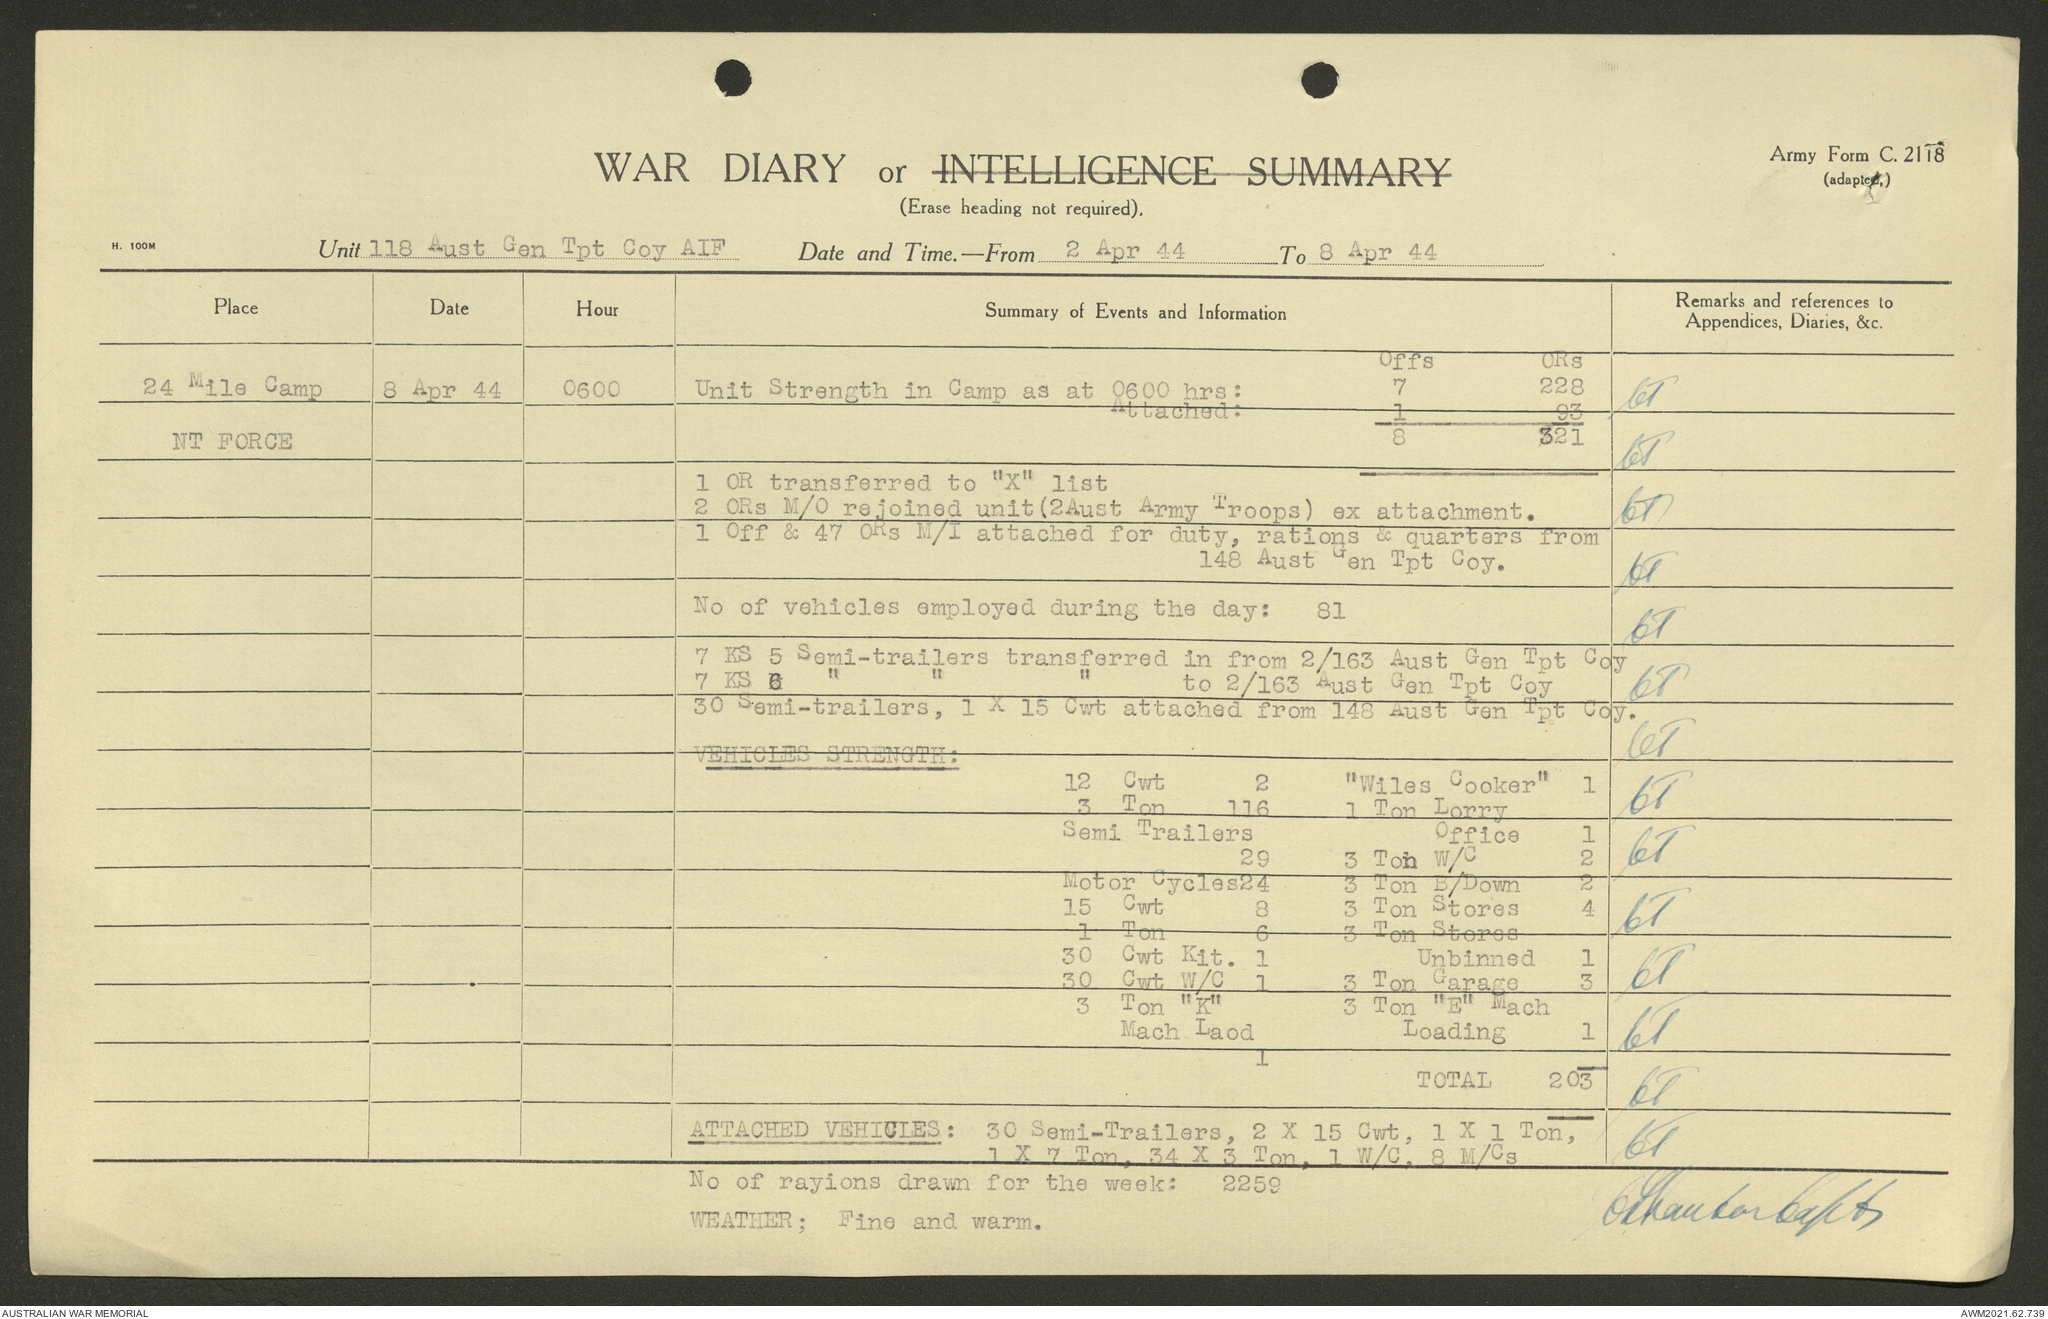 WAR DIARY or INTELLIGENCE SUMMARY
(Erase heading not required).
Army Form C. 2118
(adapted,)
H. 100M
Unit 118 Aust Gen Tpt Coy AIF Date and Time.—From 2 Apr 44 To 8 Apr 44
Place Date Hour Summary of Events and Information Remarks and references to
Appendices, Diaries, &c.
Offs ORs
24 Mile Camp 8 Apr 44 0600 Unit Strength in Camp as at 0600 hrs: 7 228
Attached: 1 93
NT FORCE 8 321
1 OR transferred to "X" list
2 ORs M/O rejoined unit(2Aust Army Troops) ex attachment.
1 Off & 47 ORs M/I attached for duty, rations & quarters from
148 Aust Gen Tpt Coy.
No of vehicles employed during the day: 81
7 KS 5 Semi-trailers transferred in from 2/163 Aust Gen Tpt Coy
7 KS 6 " " " to 2/163 Aust Gen Tpt Coy
30 Semi-trailers, 1 X 15 Cwt attached from 148 Aust Gen Tpt Coy.
VEHICLES STRENGTH:
12 Cwt 2 "Wiles Cooker" 1
3 Ton 116 1 Ton Lorry
Semi Trailers Office 1
29 3 Ton W/C 2
Motor Cycles24 3 Ton B/Down 2
15 Cwt 8 3 Ton Stores 4
1 Ton 6 3 Ton Stores
30 Cwt Kit. 1 Unbinned 1
30 Cwt W/C 1 3 Ton Garage 3
3 Ton "K" 3 Ton "E" Mach
Mach Laod Loading 1
1
TOTAL 203
ATTACHED VEHICLES: 30 Semi-Trailers, 2 X 15 Cwt, 1 X 1 Ton,
1 X 7 Ton, 34 X 3 Ton, 1 W/C, 8 M/Cs
No of rayions drawn for the week: 2259
WEATHER; Fine and warm.
AUSTRALIAN WAR MEMORIAL
AWM2021.62.739